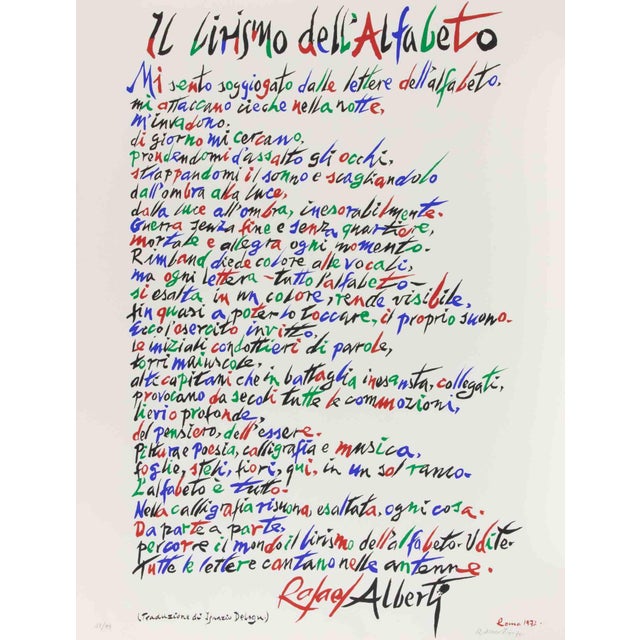 Il lirismo dell'Alfabeto
Mi sento soggiogato dalle lettere dell'alfabeto.
mi attaccano cieche nella notte,
m'invadono.
di giorno mi cercano,
prendendomi d'assalto gli occhi,
strappandomi il sonno e scagliandolo
dall'ombra alla luce,
dalla luce all'ombra, inesorabilmente.
Guerra senza fine e senza quartiere,
mortale e allegra ogni momento.
Rimbaud diede colore alle vocali,
ma ogni lettera - tutto l'alfabeto -
si esalta in un colore, rende visibile,
fin quasi a poterlo toccare, il proprio suono.
Ecco l'esercito invitto,
le iniziali condottieri di parole,
torri maiuscole,
alti capitani che in battaglia inesausta, collegati,
provocano da secoli tutte le commozioni,
lievi o profonde,
del pensiero, dell'essere.
Pittura e poesia, calligrafia e musica,
foglie, steli, fiori, qui, in un sol ramo.
L'alfabeto è tutto.
Nella calligrafia risuona, esaltata, ogni cosa.
Da parte a parte,
percorre il mondo il lirismo dell'alfabeto. Udite.
Tutte le lettere cantano nelle antenne.
Rafael Alberti
(Traduzione di Ignazio Delogu) Roma 1972.